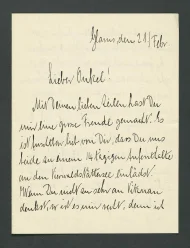 Glarus, den 21/Febr
Lieber Onkel!
Mit Deinen lieben Zeilen hast Du
mir eine grosse Freude gemacht. Es
ist lieb von Dir, dass Du uns
beide zu einem 14tägigen Aufenthalte
an den Vierwaldstättersee einladest.
Wenn Du nicht so sehr an
denkst, so ist es mir recht, denn ich